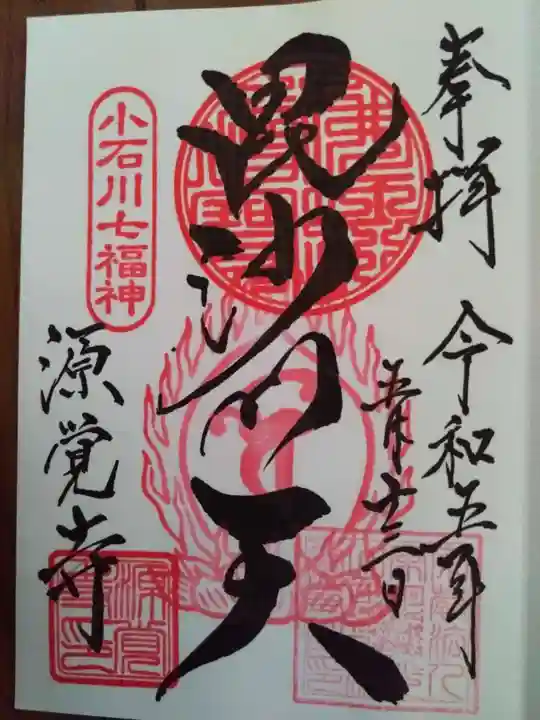 奉拝
令和五年
五月十三日
毘沙門天
小石川七福神
源覚寺